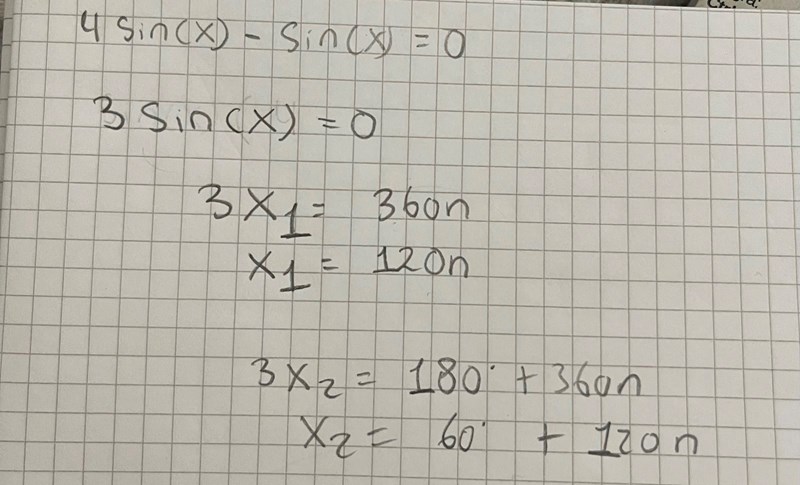 4 sin(x) - sin(x) = 0
3 sin(x) = 0
3x1 = 360n
x1 = 120n
3x2 = 180° + 360n
x2 = 60° + 120n